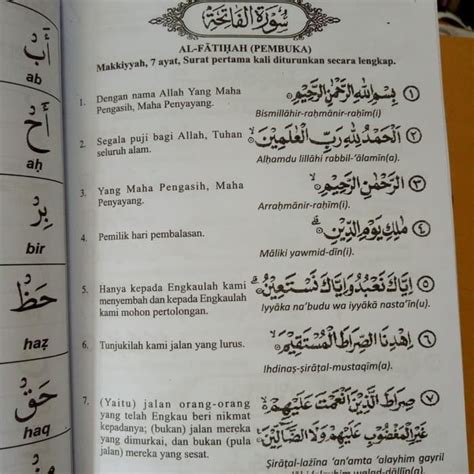 سُوْرَةُ الْفَاتِحَةِ
AL-FĀTIḤAH (PEMBUKA)
Makkiyyah, 7 ayat, Surat pertama kali diturunkan secara lengkap.
1. Dengan nama Allah Yang Maha
Pengasih, Maha Penyayang.
بِسْمِ اللّٰهِ الرَّحْمٰنِ الرَّحِيْمِ ۝ ١
Bismillāhir-raḥmānir-raḥīm(i)
2. Segala puji bagi Allah, Tuhan
seluruh alam.
اَلْحَمْدُ لِلّٰهِ رَبِّ الْعٰلَمِيْنَ ۝ ٢
Alḥamdu lillāhi rabbil-'ālamīn(a).
3. Yang Maha Pengasih, Maha
Penyayang.
الرَّحْمٰنِ الرَّحِيْمِ ۝ ٣
Arraḥmānir-raḥīm(i).
4. Pemilik hari pembalasan.
مٰلِكِ يَوْمِ الدِّيْنِ ۝ ٤
Māliki yawmid-dīn(i).
5. Hanya kepada Engkaulah kami
menyembah dan kepada Engkaulah
kami mohon pertolongan.
اِيَّاكَ نَعْبُدُ وَاِيَّاكَ نَسْتَعِيْنُ ۝ ٥
Iyyāka na'budu wa iyyāka nasta'īn(u).
6. Tunjukilah kami jalan yang lurus.
اِهْدِنَا الصِّرَاطَ الْمُسْتَقِيْمَ ۝ ٦
Ihdinaṣ-ṣirāṭal-mustaqīm(a).
7. (Yaitu) jalan orang-orang
yang telah Engkau beri nikmat
kepadanya; (bukan) jalan mereka
yang dimurkai, dan bukan (pula
jalan) mereka yang sesat.
صِرَاطَ الَّذِيْنَ اَنْعَمْتَ عَلَيْهِمْ ٧
غَيْرِ الْمَغْضُوْبِ عَلَيْهِمْ وَلَا الضَّآلِّيْنَ
Ṣirāṭal-lażīna 'an'amta 'alayhim gayril
أَبْ
ab
أَحْ
aḥ
بِرْ
bir
حَظْ
haẓ
حَقْ
haq